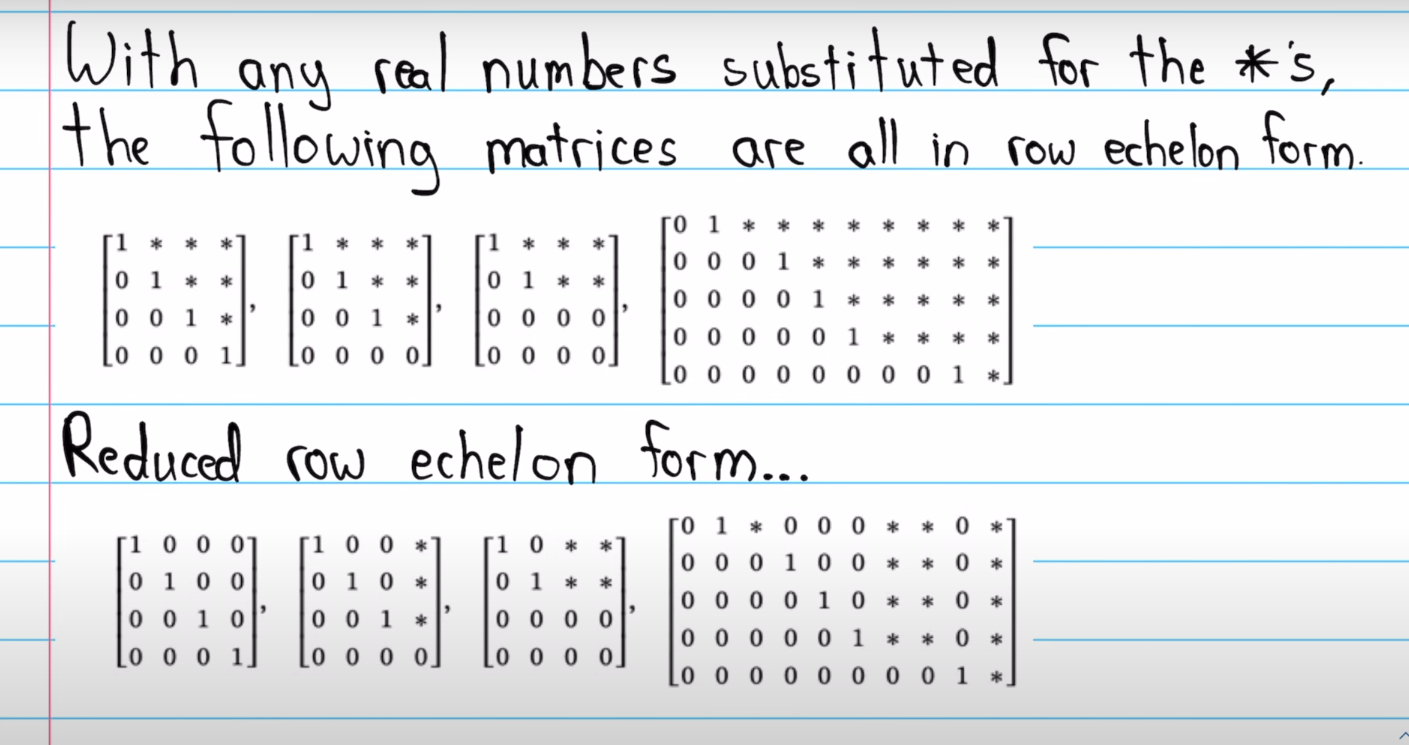 With any real numbers substituted for the *'s,
the following matrices are all in row echelon form.
[1 * * *] [1 * * *] [1 * * *] [0 1 * * * * * * * *]
[0 1 * *] [0 1 * *] [0 1 * *] [0 0 0 1 * * * * * *]
[0 0 1 *], [0 0 1 *], [0 0 0 0], [0 0 0 0 1 * * * * *]
[0 0 0 1] [0 0 0 0] [0 0 0 0] [0 0 0 0 0 1 * * * *]
[0 0 0 0 0 0 0 0 1 *]
Reduced row echelon form...
[1 0 0 0] [1 0 0 *] [1 0 * *] [0 1 * 0 0 0 * * 0 *]
[0 1 0 0] [0 1 0 *] [0 1 * *] [0 0 0 1 0 0 * * 0 *]
[0 0 1 0], [0 0 1 *], [0 0 0 0], [0 0 0 0 1 0 * * 0 *]
[0 0 0 1] [0 0 0 0] [0 0 0 0] [0 0 0 0 0 1 * * 0 *]
[0 0 0 0 0 0 0 0 1 *]